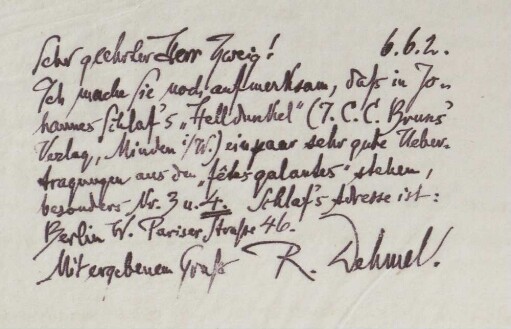 Sehr geehrter Herr Zweig! 6.6.2.
Ich mache Sie noch aufmerksam, daß in Jo-
hannes Schlaf's „Helldunkel“ (J. C. C. Bruns'
Verlag, Minden i/W.) ein paar sehr gute Ueber-
tragungen aus den „fêtes galantes“ stehen,
besonders Nr. 3 u. 4. Schlaf's Adresse ist:
Berlin W. Pariser Straße 46.
Mit ergebenem Gruß R. Dehmel.